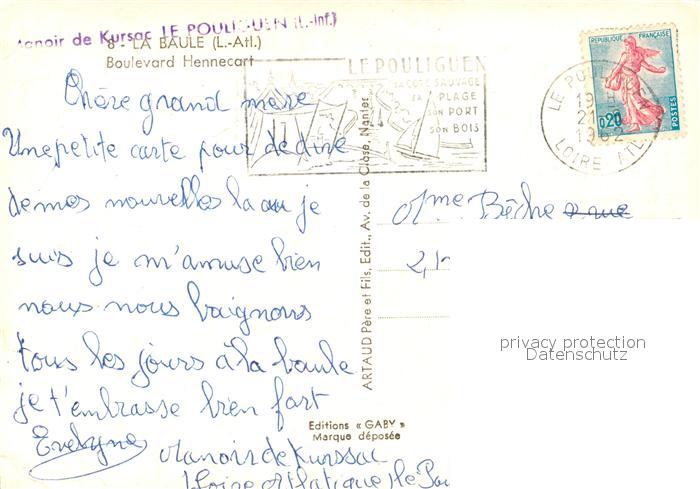 Manoir de Kursac LE POULIGUEN (L.-Inf.)
8 - LA BAULE (L.-Atl.)
Boulevard Hennecart
Chère grand mère
Une petite carte pour de dire
de mes nouvelles la au je
suis je m'amuse bien
nous nous baignons
tous les jours à la baule
je t'embrasse bien fort
Evelyne
Manoir de Kurssac
Loire Atlatique le Pou
LE POULIGUEN
SA COTE SAUVAGE
SA PLAGE
SON PORT
SON BOIS
ARTAUD Père et Fils, Edit., Av. de la Close, Nantes
Editions « GABY »
Marque déposée
LE POU
21
1962
LOIRE ATL.
REPUBLIQUE FRANÇAISE
0,20
POSTES
Mme Bêche
2,
privacy protection
Datenschutz